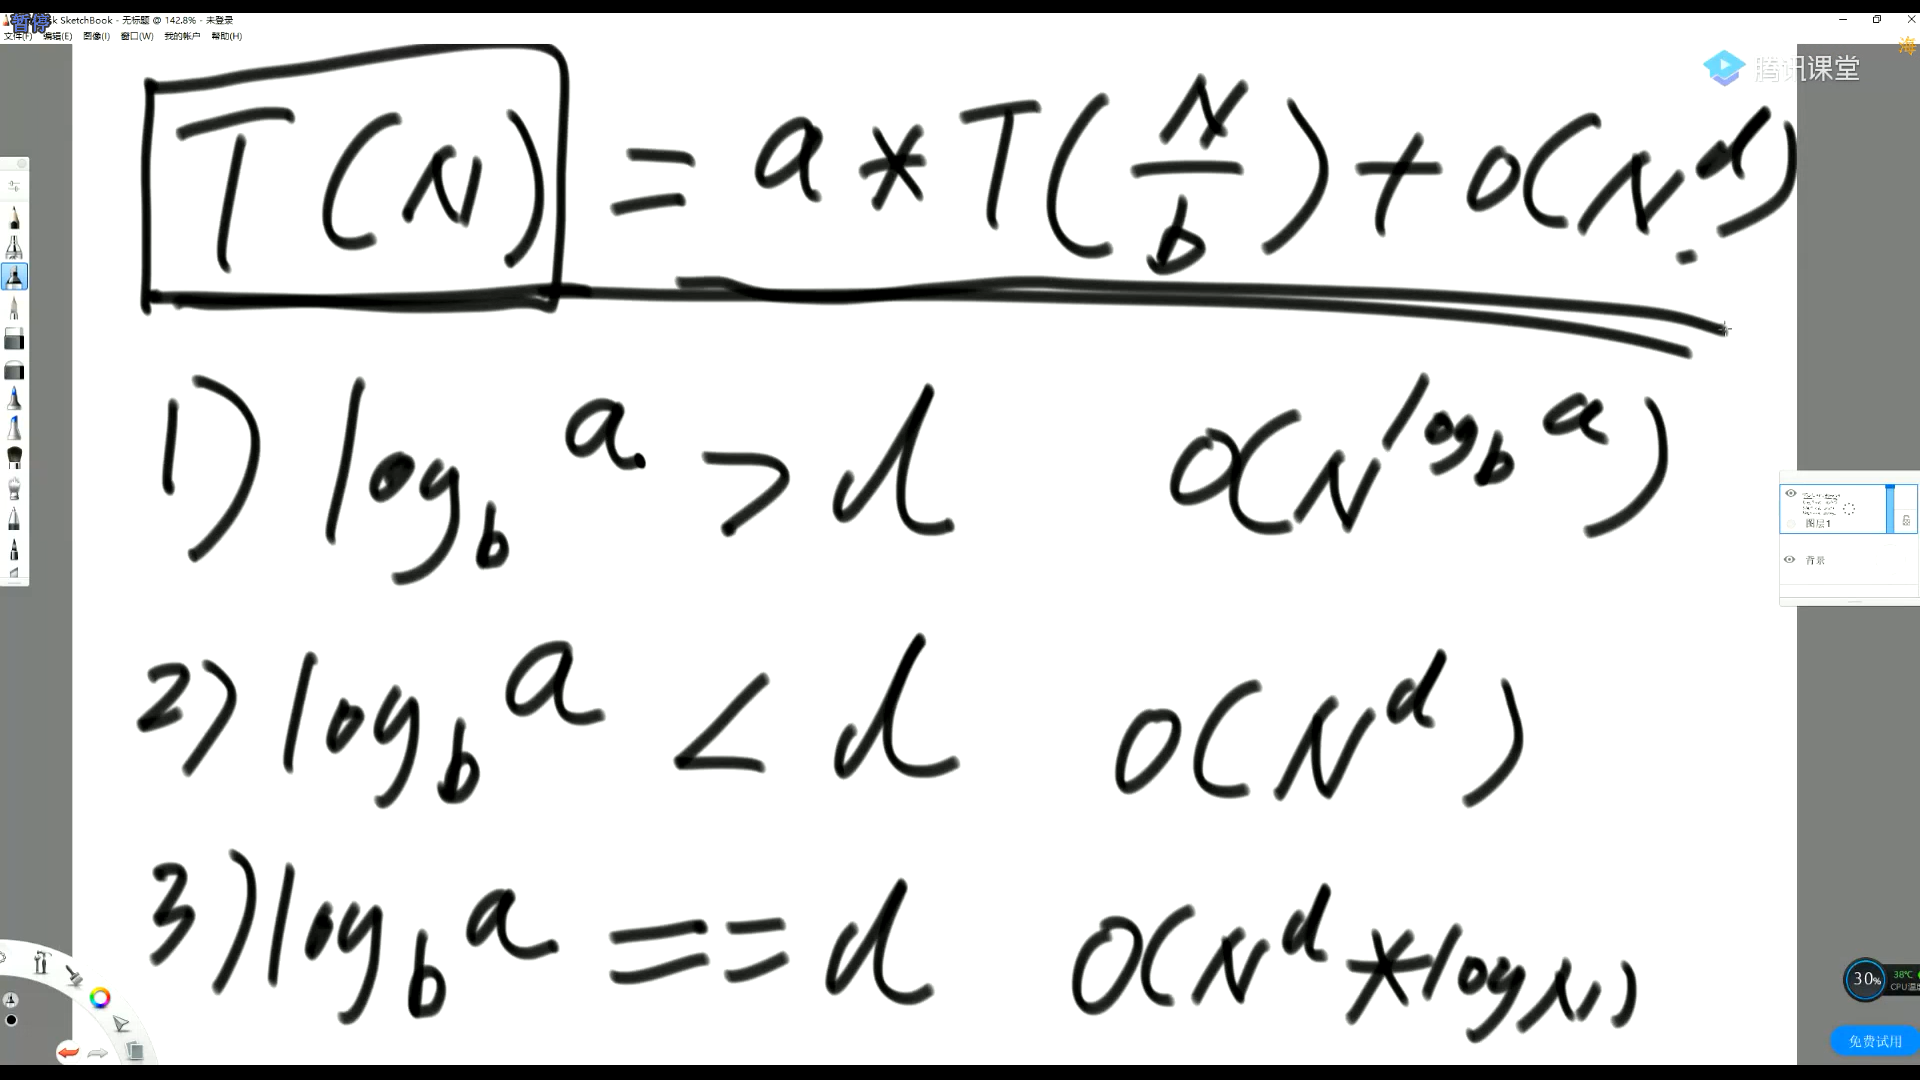 暂停
k SketchBook - 无标题 @ 142.8% - 未登录
文件(F) 编辑(E) 图像(I) 窗口(W) 我的帐户 帮助(H)
海
腾讯课堂
T(N) = a * T(N/b) + O(N^d)
1) log_b a > d O(N^(log_b a))
2) log_b a < d O(N^d)
3) log_b a == d O(N^d * log N)
图层1
背景
30%
38℃
CPU温度
免费试用